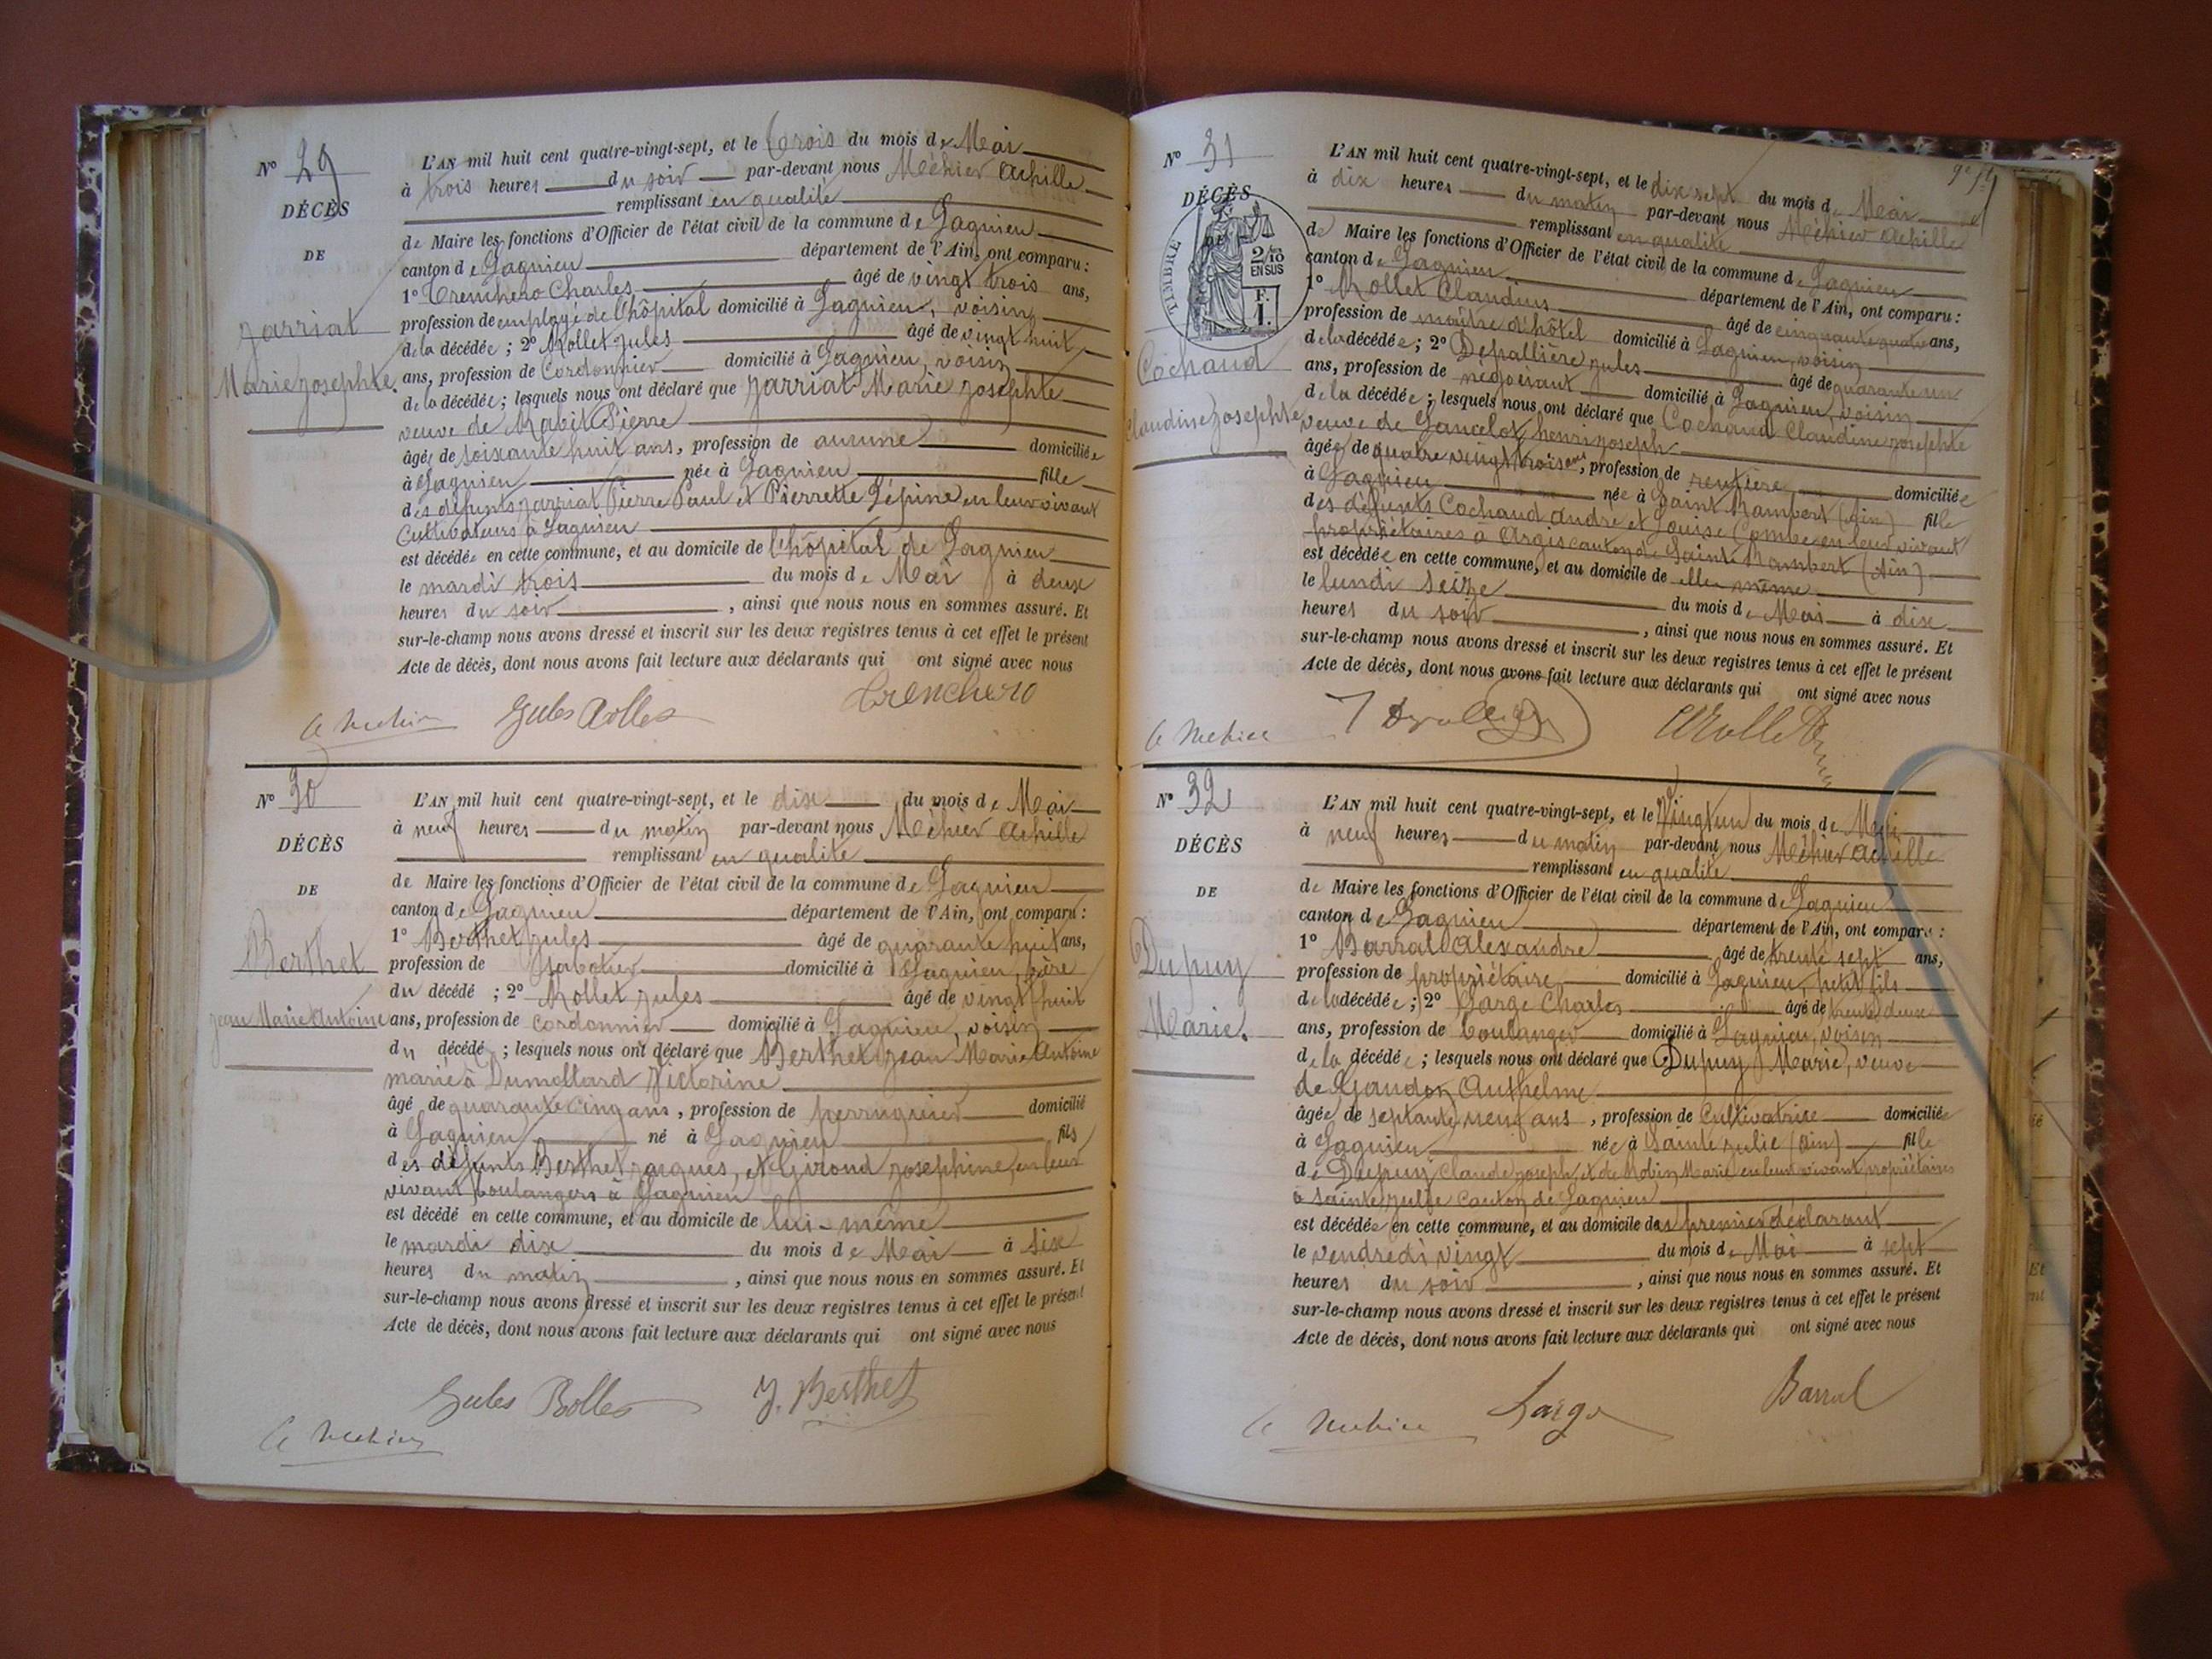 N° 29
DÉCÈS
DE
Jarriat
Marie Josephte
L'AN mil huit cent quatre-vingt-sept, et le trois du mois de Mai
à trois heures du soir par-devant nous Méhier Achille
remplissant en qualité
de Maire les fonctions d'Officier de l'état civil de la commune de Lagnieu
canton de Lagnieu département de l'Ain, ont comparu :
1° Trenchero Charles âgé de vingt trois ans,
profession de employé de l'hôpital domicilié à Lagnieu, voisin
de la décédée ; 2° Rollet Jules âgé de vingt huit
ans, profession de Cordonnier domicilié à Lagnieu, voisin
de la décédée ; lesquels nous ont déclaré que Jarriat Marie Josephte
veuve de Pierre
âgée de soixante huit ans, profession de aucune domiciliée
à Lagnieu née à Lagnieu fille
des défunts Jarriat Pierre Paul et Pierrette Lépine en leur vivant
Cultivateurs à Lagnieu
est décédée en cette commune, et au domicile de l'hôpital de Lagnieu
le mardi trois du mois de Mai à deux
heures du soir , ainsi que nous nous en sommes assuré. Et
sur-le-champ nous avons dressé et inscrit sur les deux registres tenus à cet effet le présent
Acte de décès, dont nous avons fait lecture aux déclarants qui ont signé avec nous
Jules Rollet Trenchero
N° 30
DÉCÈS
DE
Berthet
Jean Marie Antoine
L'AN mil huit cent quatre-vingt-sept, et le dix du mois de Mai
à neuf heures du matin par-devant nous Méhier Achille
remplissant en qualité
de Maire les fonctions d'Officier de l'état civil de la commune de Lagnieu
canton de Lagnieu département de l'Ain, ont comparu :
1° Berthet Jules âgé de quarante huit ans,
profession de Sabotier domicilié à Lagnieu, frère
du décédé ; 2° Rollet Jules âgé de vingt huit
ans, profession de cordonnier domicilié à Lagnieu, voisin
du décédé ; lesquels nous ont déclaré que Berthet Jean Marie Antoine
marié à Dumollard Victorine
âgé de quarante cinq ans, profession de perruquier domicilié
à Lagnieu né à Lagnieu fils
des défunts Berthet Jacques, et Giroud Josephine, en leur
vivant boulangers à Lagnieu
est décédé en cette commune, et au domicile de lui-même
le mardi dix du mois de Mai à six
heures du matin , ainsi que nous nous en sommes assuré. Et
sur-le-champ nous avons dressé et inscrit sur les deux registres tenus à cet effet le présent
Acte de décès, dont nous avons fait lecture aux déclarants qui ont signé avec nous
Jules Rollet J. Berthet
N° 31
DÉCÈS
DE
TIMBRE
2/10
EN SUS
F.
1.
Cochaud
Claudine Josephte
L'AN mil huit cent quatre-vingt-sept, et le dix sept du mois de Mai
à dix heures du matin par-devant nous Méhier Achille
remplissant en qualité
de Maire les fonctions d'Officier de l'état civil de la commune de Lagnieu
canton de Lagnieu département de l'Ain, ont comparu :
1° Rollet Claudius âgé de cinquante quatre ans,
profession de maître d'hôtel domicilié à Lagnieu, voisin
de la décédée ; 2° Depallière Jules âgé de quarante un
ans, profession de négociant domicilié à Lagnieu, voisin
de la décédée ; lesquels nous ont déclaré que Cochaud Claudine Josephte
veuve de Lancelot henri Joseph
âgée de quatre vingt trois ans, profession de rentière domiciliée
à Lagnieu née à Saint Rambert (Ain) fille
des défunts Cochaud André et Louise Combe en leur vivant
propriétaires à Argis canton de Saint Rambert (Ain)
est décédée en cette commune, et au domicile de elle même
le lundi seize du mois de Mai à dix
heures du soir , ainsi que nous nous en sommes assuré. Et
sur-le-champ nous avons dressé et inscrit sur les deux registres tenus à cet effet le présent
Acte de décès, dont nous avons fait lecture aux déclarants qui ont signé avec nous
N° 32
DÉCÈS
DE
Dupuy
Marie.
L'AN mil huit cent quatre-vingt-sept, et le vingt un du mois de Mai
à neuf heures du matin par-devant nous Méhier Achille
remplissant en qualité
de Maire les fonctions d'Officier de l'état civil de la commune de Lagnieu
canton de Lagnieu département de l'Ain, ont comparu :
1° Barral Alexandre âgé de trente sept ans,
profession de propriétaire domicilié à Lagnieu, petit fils
de la décédée ; 2° Large Charles âgé de trente deux
ans, profession de boulanger domicilié à Lagnieu, voisin
de la décédée ; lesquels nous ont déclaré que Dupuy Marie, veuve
de Gaudon Anthelme
âgée de septante neuf ans, profession de Cultivatrice domiciliée
à Lagnieu née à Sainte Julie (Ain) fille
de Dupuy Claude Joseph, et de Marie en leur vivant propriétaires
à Sainte Julie Canton de Lagnieu
est décédée en cette commune, et au domicile du premier déclarant
le vendredi vingt du mois de Mai à sept
heures du soir , ainsi que nous nous en sommes assuré. Et
sur-le-champ nous avons dressé et inscrit sur les deux registres tenus à cet effet le présent
Acte de décès, dont nous avons fait lecture aux déclarants qui ont signé avec nous
Large Barral